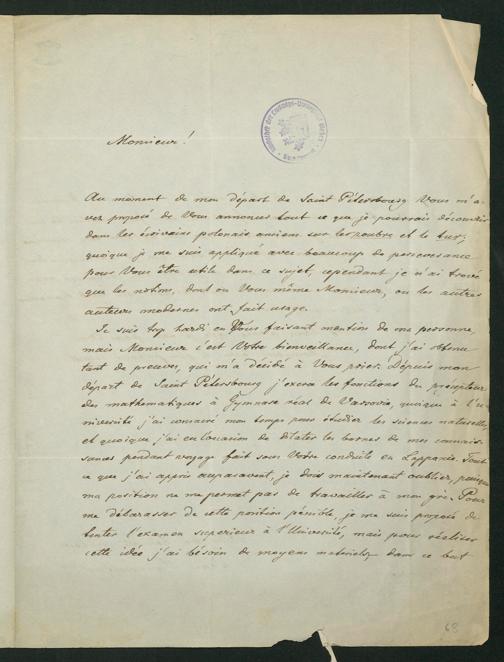 Monsieur!
Au moment de mon départ de Saint Pétersbourg Vous m'a-
vez proposé de Vous annoncer tout ce que je pourrais découvrir
dans les écrivains polonais anciens sur les zoubre et le tur;
quoique je me suis appliqué avec beaucoup de perseverance
pour Vous être utile dans ce sujet, cependant je n'ai trouvé
que les notions, dont ou Vous même Monsieur, ou les autres
auteurs modernes ont fait usage.
Je suis trop hardi en Vous faisant mention de ma personne,
mais Monsieur c'est Votre bienveillance, dont j'ai obtenu
tant de preuves, qui m'a décidé à Vous prier. Dépuis mon
départ de Saint Pétersbourg j'exerce les fonctions du precepteur
des mathematiques à Gymnase réal de Varsovie, quoique à l'u-
niversité j'ai consacré mon temps pour étudier les siences naturelles
et quoique j'ai eu l'occasion de dilater les bornes de mes connais-
sances pendant voyage fait sous Votre conduite en Lapponie. Tout
ce que j'ai appris auparavent, je dois maintenant oublier, puisque
ma position ne me permet pas de travailler à mon gré. Pour
me débarasser de cette position pénible, je me suis proposé de
tenter l'examen superieur à l'Université, mais pour réaliser
cette idée j'ai bésoin de moyens materiels, dans ce but
68